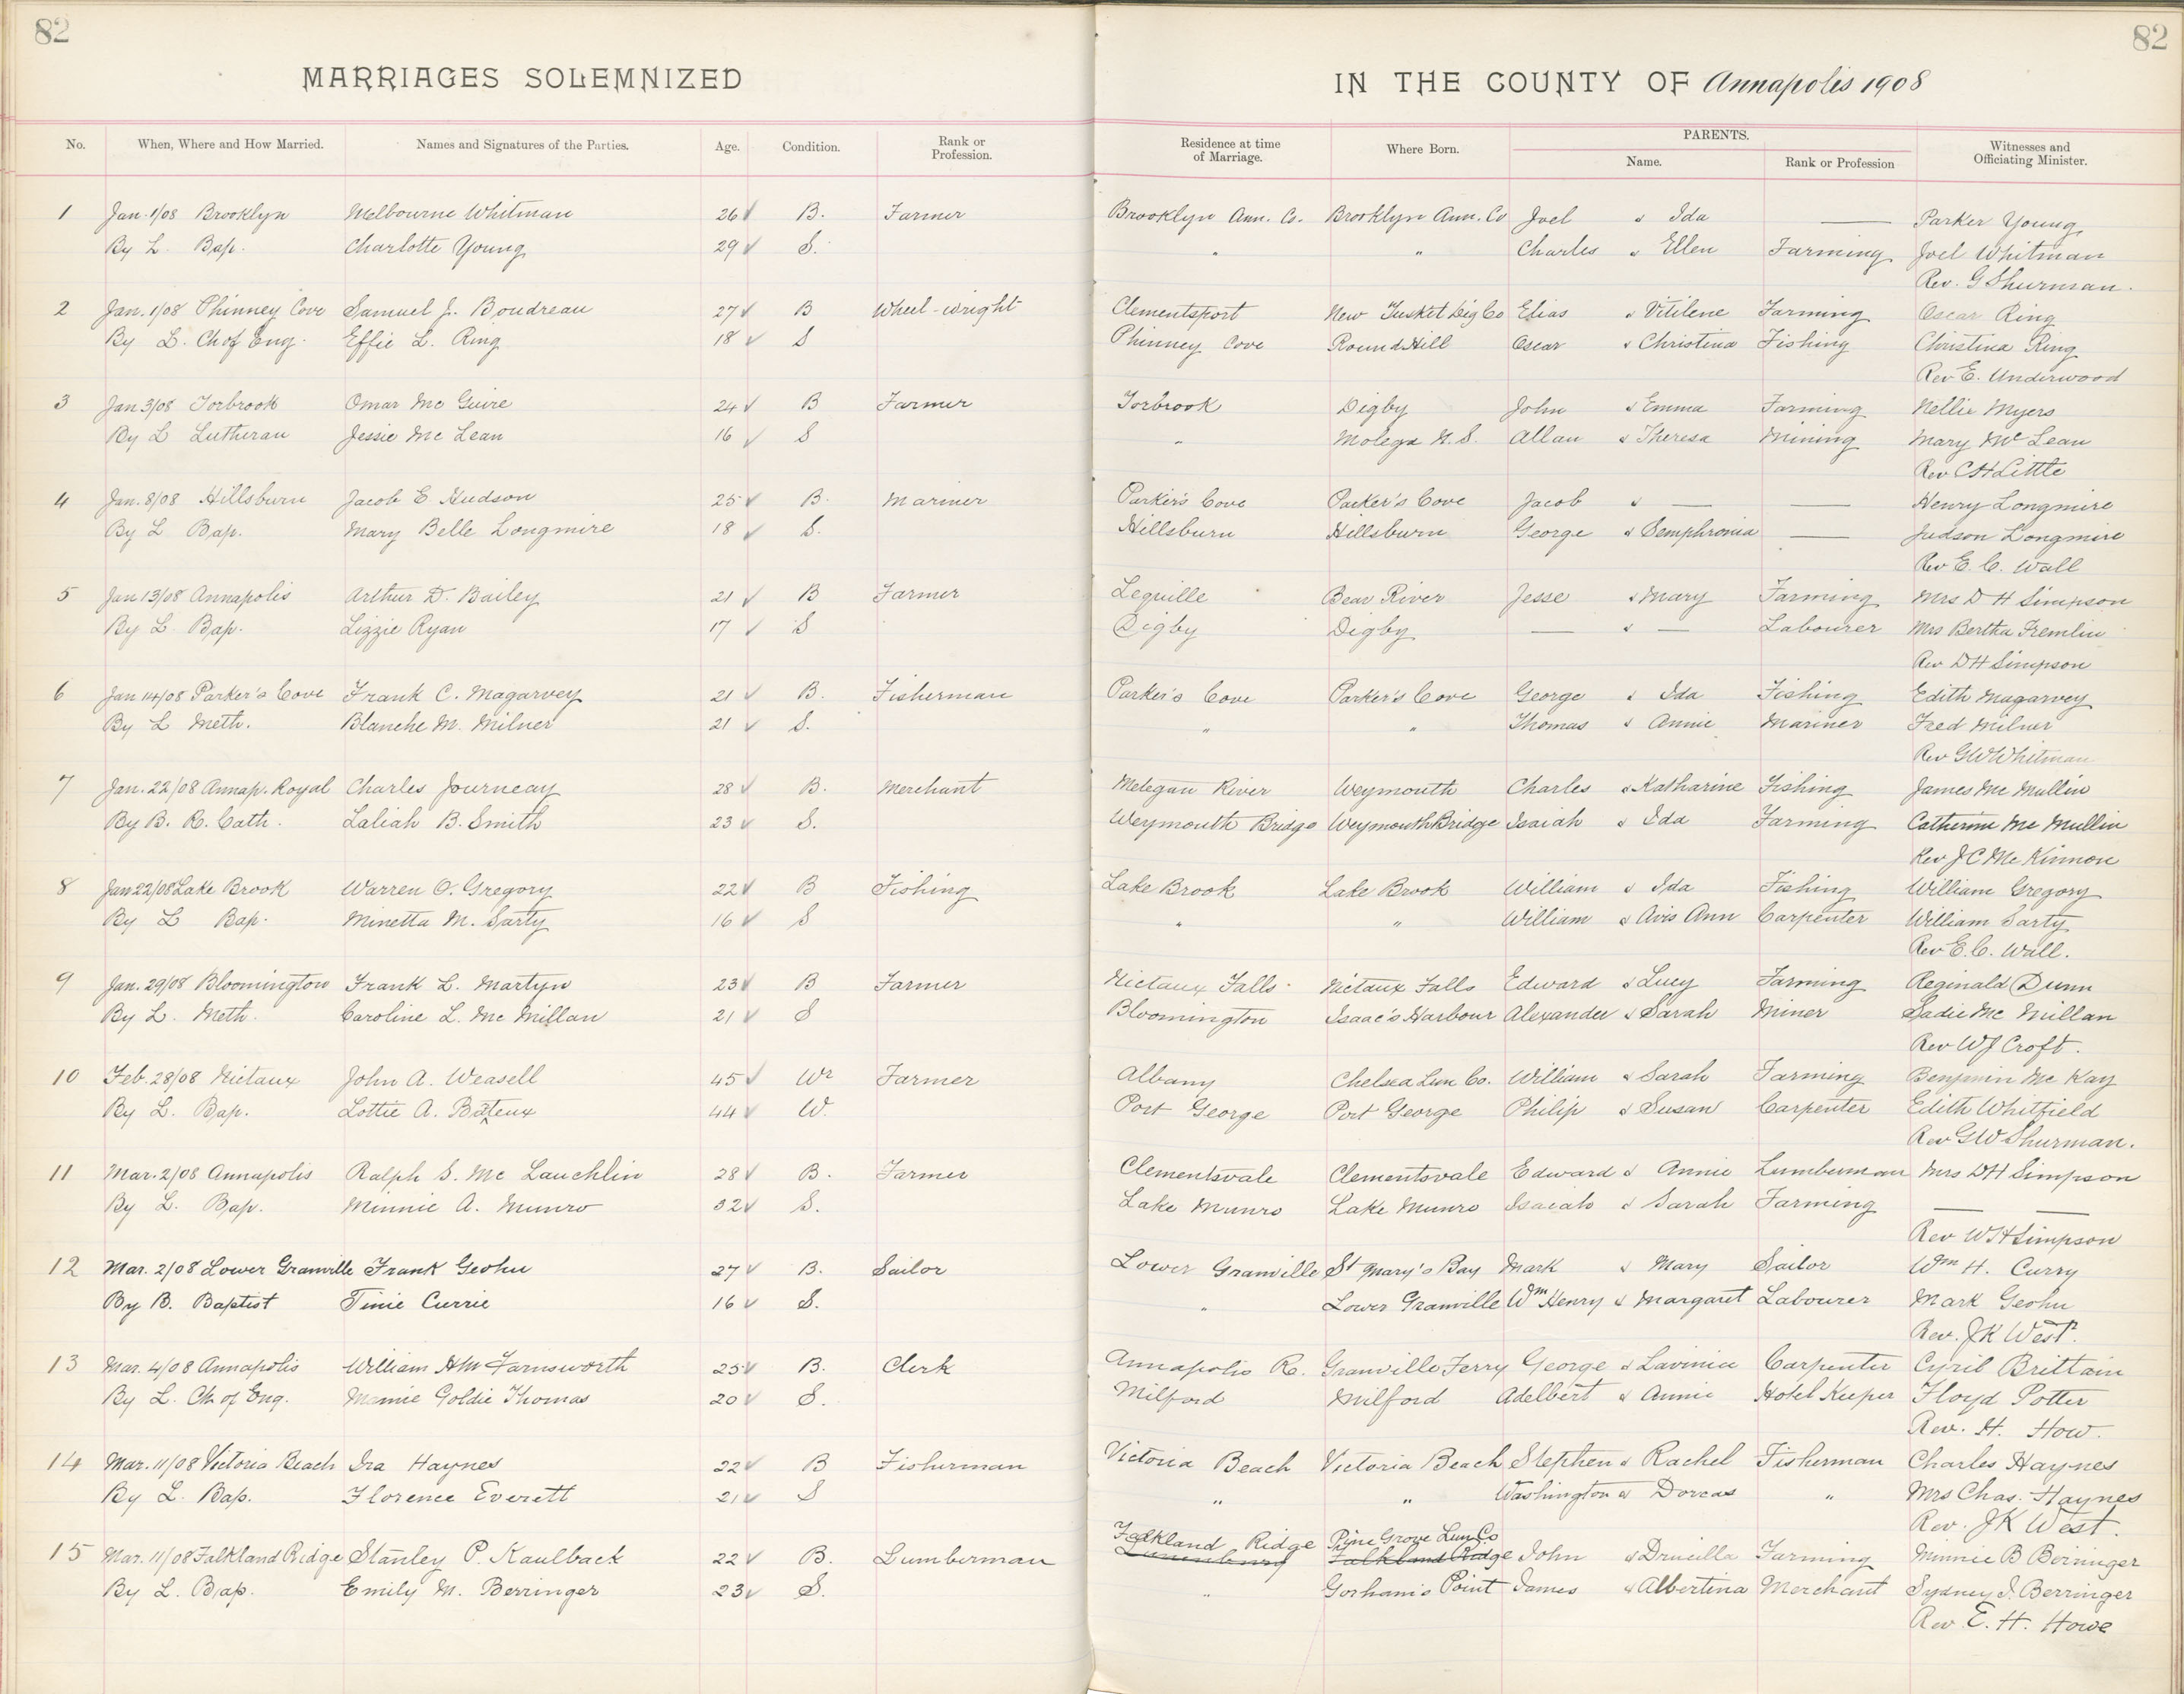 82
82
MARRIAGES SOLEMNIZED
IN THE COUNTY OF Annapolis 1908
No. When, Where and How Married. Names and Signatures of the Parties. Age. Condition. Rank or Profession. Residence at time of Marriage. Where Born. PARENTS. Name. Rank or Profession Witnesses and Officiating Minister.
1 Jan. 1/08 Brooklyn Melbourne Whitman 26 ✓ B. Farmer Brooklyn Ann. Co. Brooklyn Ann. Co Joel & Ida — Parker Young
By L. Bap. Charlotte Young 29 ✓ S. " " Charles & Ellen Farming Joel Whitman
Rev. G Shurman.
2 Jan. 1/08 Phinney Cove Samuel J. Boudreau 27 ✓ B Wheel-wright Clementsport New Tusket Dig Co Elias & Vitilene Farming Oscar Ring
By L. Ch of Eng. Effie L. Ring 18 ✓ S Phinney Cove Round Hill Oscar & Christina Fishing Christina Ring
Rev E. Underwood
3 Jan 3/08 Torbrook Omar Mc Guire 24 ✓ B Farmer Torbrook Digby John & Emma Farming Nellie Myers
By L Lutheran Jessie Mc Lean 16 ✓ S " Molega N.S. Allan & Theresa Mining Mary Mc Lean
Rev C H Little
4 Jan. 8/08 Hillsburn Jacob E Hudson 25 ✓ B. Mariner Parker's Cove Parker's Cove Jacob & — — Henry Longmire
By L Bap. Mary Belle Longmire 18 ✓ S. Hillsburn Hillsburn George & Semphronia — Judson Longmire
Rev E. C. Wall
5 Jan 13/08 Annapolis Arthur D. Bailey 21 ✓ B Farmer Lequille Bear River Jesse & Mary Farming Mrs D H Simpson
By L Bap. Lizzie Ryan 17 ✓ S Digby Digby — & — Labourer Mrs Bertha Tremlin
Rev D H Simpson
6 Jan 14/08 Parker's Cove Frank C. Magarvey 21 ✓ B. Fisherman Parker's Cove Parker's Cove George & Ida Fishing Edith Magarvey
By L Meth. Blanche M. Milner 21 ✓ S. " " Thomas & Annie Mariner Fred Milner
Rev G W Whitman
7 Jan. 22/08 Annap. Royal Charles Journeay 28 ✓ B. Merchant Metegan River Weymouth Charles & Katharine Fishing James Mc Mullin
By B. R. Cath. Laliah B. Smith 23 ✓ S. Weymouth Bridge Weymouth Bridge Isaiah & Ida Farming Catherine Mc Mullin
Rev J C Mc Kinnon
8 Jan 22/08 Lake Brook Warren O. Gregory 22 ✓ B Fishing Lake Brook Lake Brook William & Ida Fishing William Gregory
By L Bap. Minetta M. Sarty 16 ✓ S " " William & Avis Ann Carpenter William Sarty
Rev E. C. Wall.
9 Jan. 29/08 Bloomington Frank L. Martyn 23 ✓ B Farmer Nictaux Falls Nictaux Falls Edward & Lucy Farming Reginald Dunn
By L. Meth. Caroline L. Mc Millan 21 ✓ S Bloomington Isaac's Harbour Alexander & Sarah Miner Sadie Mc Millan
Rev W J Croft.
10 Feb. 28/08 Nictaux John A. Weasell 45 ✓ Wr Farmer Albany Chelsea Lun Co. William & Sarah Farming Benjamin Mc Kay
By L. Bap. Lottie A. Bateux 44 ✓ W. Port George Port George Philip & Susan Carpenter Edith Whitfield
Rev G W Shurman.
11 Mar. 2/08 Annapolis Ralph S. Mc Lauchlin 28 ✓ B. Farmer Clementsvale Clementsvale Edward & Annie Lumberman Mrs D H Simpson
By L. Bap. Minnie A. Munro 32 ✓ S. Lake Munro Lake Munro Isaiah & Sarah Farming — —
Rev W H Simpson
12 Mar. 2/08 Lower Granville Frank Geohu 27 ✓ B. Sailor Lower Granville St Mary's Bay Mark & Mary Sailor Wm H. Curry
By B. Baptist Tinie Currie 16 ✓ S. " Lower Granville Wm Henry & Margaret Labourer Mark Geohu
Rev. J K West.
13 Mar. 4/08 Annapolis William Hm Farnsworth 25 ✓ B. Clerk Annapolis R. Granville Ferry George & Lavinia Carpenter Cyril Brittain
By L. Ch of Eng. Mamie Goldie Thomas 20 ✓ S. Milford Milford Adelbert & Annie Hotel Keeper Floyd Potter
Rev. H. How.
14 Mar. 11/08 Victoria Beach Ira Haynes 22 ✓ B Fisherman Victoria Beach Victoria Beach Stephen & Rachel Fisherman Charles Haynes
By L. Bap. Florence Everett 21 ✓ S " " Washington & Dorcas " Mrs Chas. Haynes
Rev. J K West.
15 Mar. 11/08 Falkland Ridge Stanley P. Kaulback 22 ✓ B. Lumberman Falkland Ridge Lunenburg Pine Grove Lun Co Falkland Ridge John & Drucilla Farming Minnie B Beringer
By L. Bap. Emily M. Berringer 23 ✓ S. " Gorham's Point James & Albertina Merchant Sydney I. Berringer
Rev E. H. Howe